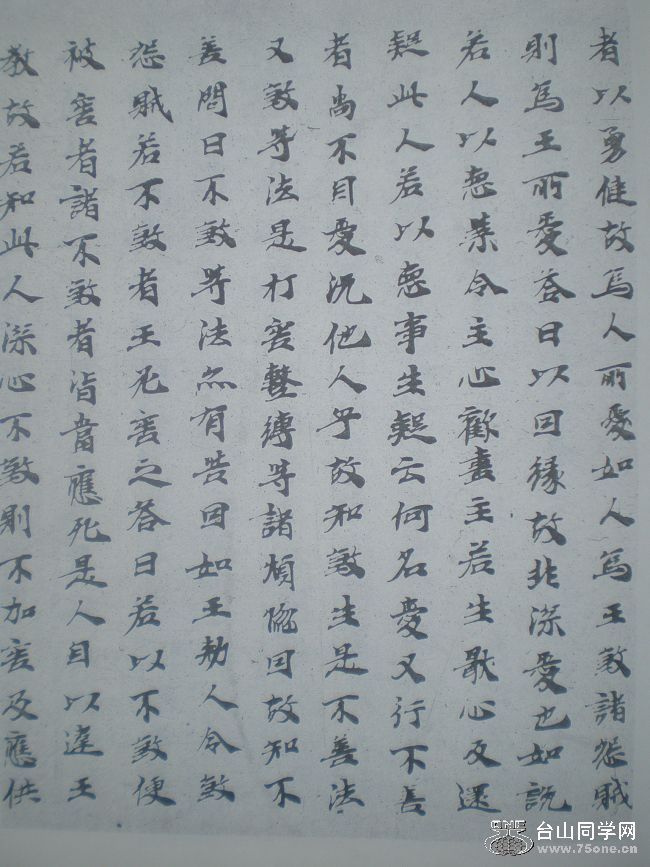 者以勇健故為人所愛如人為王煞諸怨賊
則為王所愛答曰以因緣故非深愛也如說
若人以惡業令主心歡喜主若生厭心反還
疑此人若以惡事生疑云何名愛又行不善
者尚不自愛況他人乎故知煞生是不善法
又煞等法是打害繫縛等諸煩惱因故知不
善問曰不煞等法亦有苦因如王勑人令煞
怨賊若不煞者王害之答曰若以不煞便
被害者諸不煞者皆當應死是人自以違王
教故若知此人深心不煞則不加害及應供
ONE 台山同学网
www.75one.cn